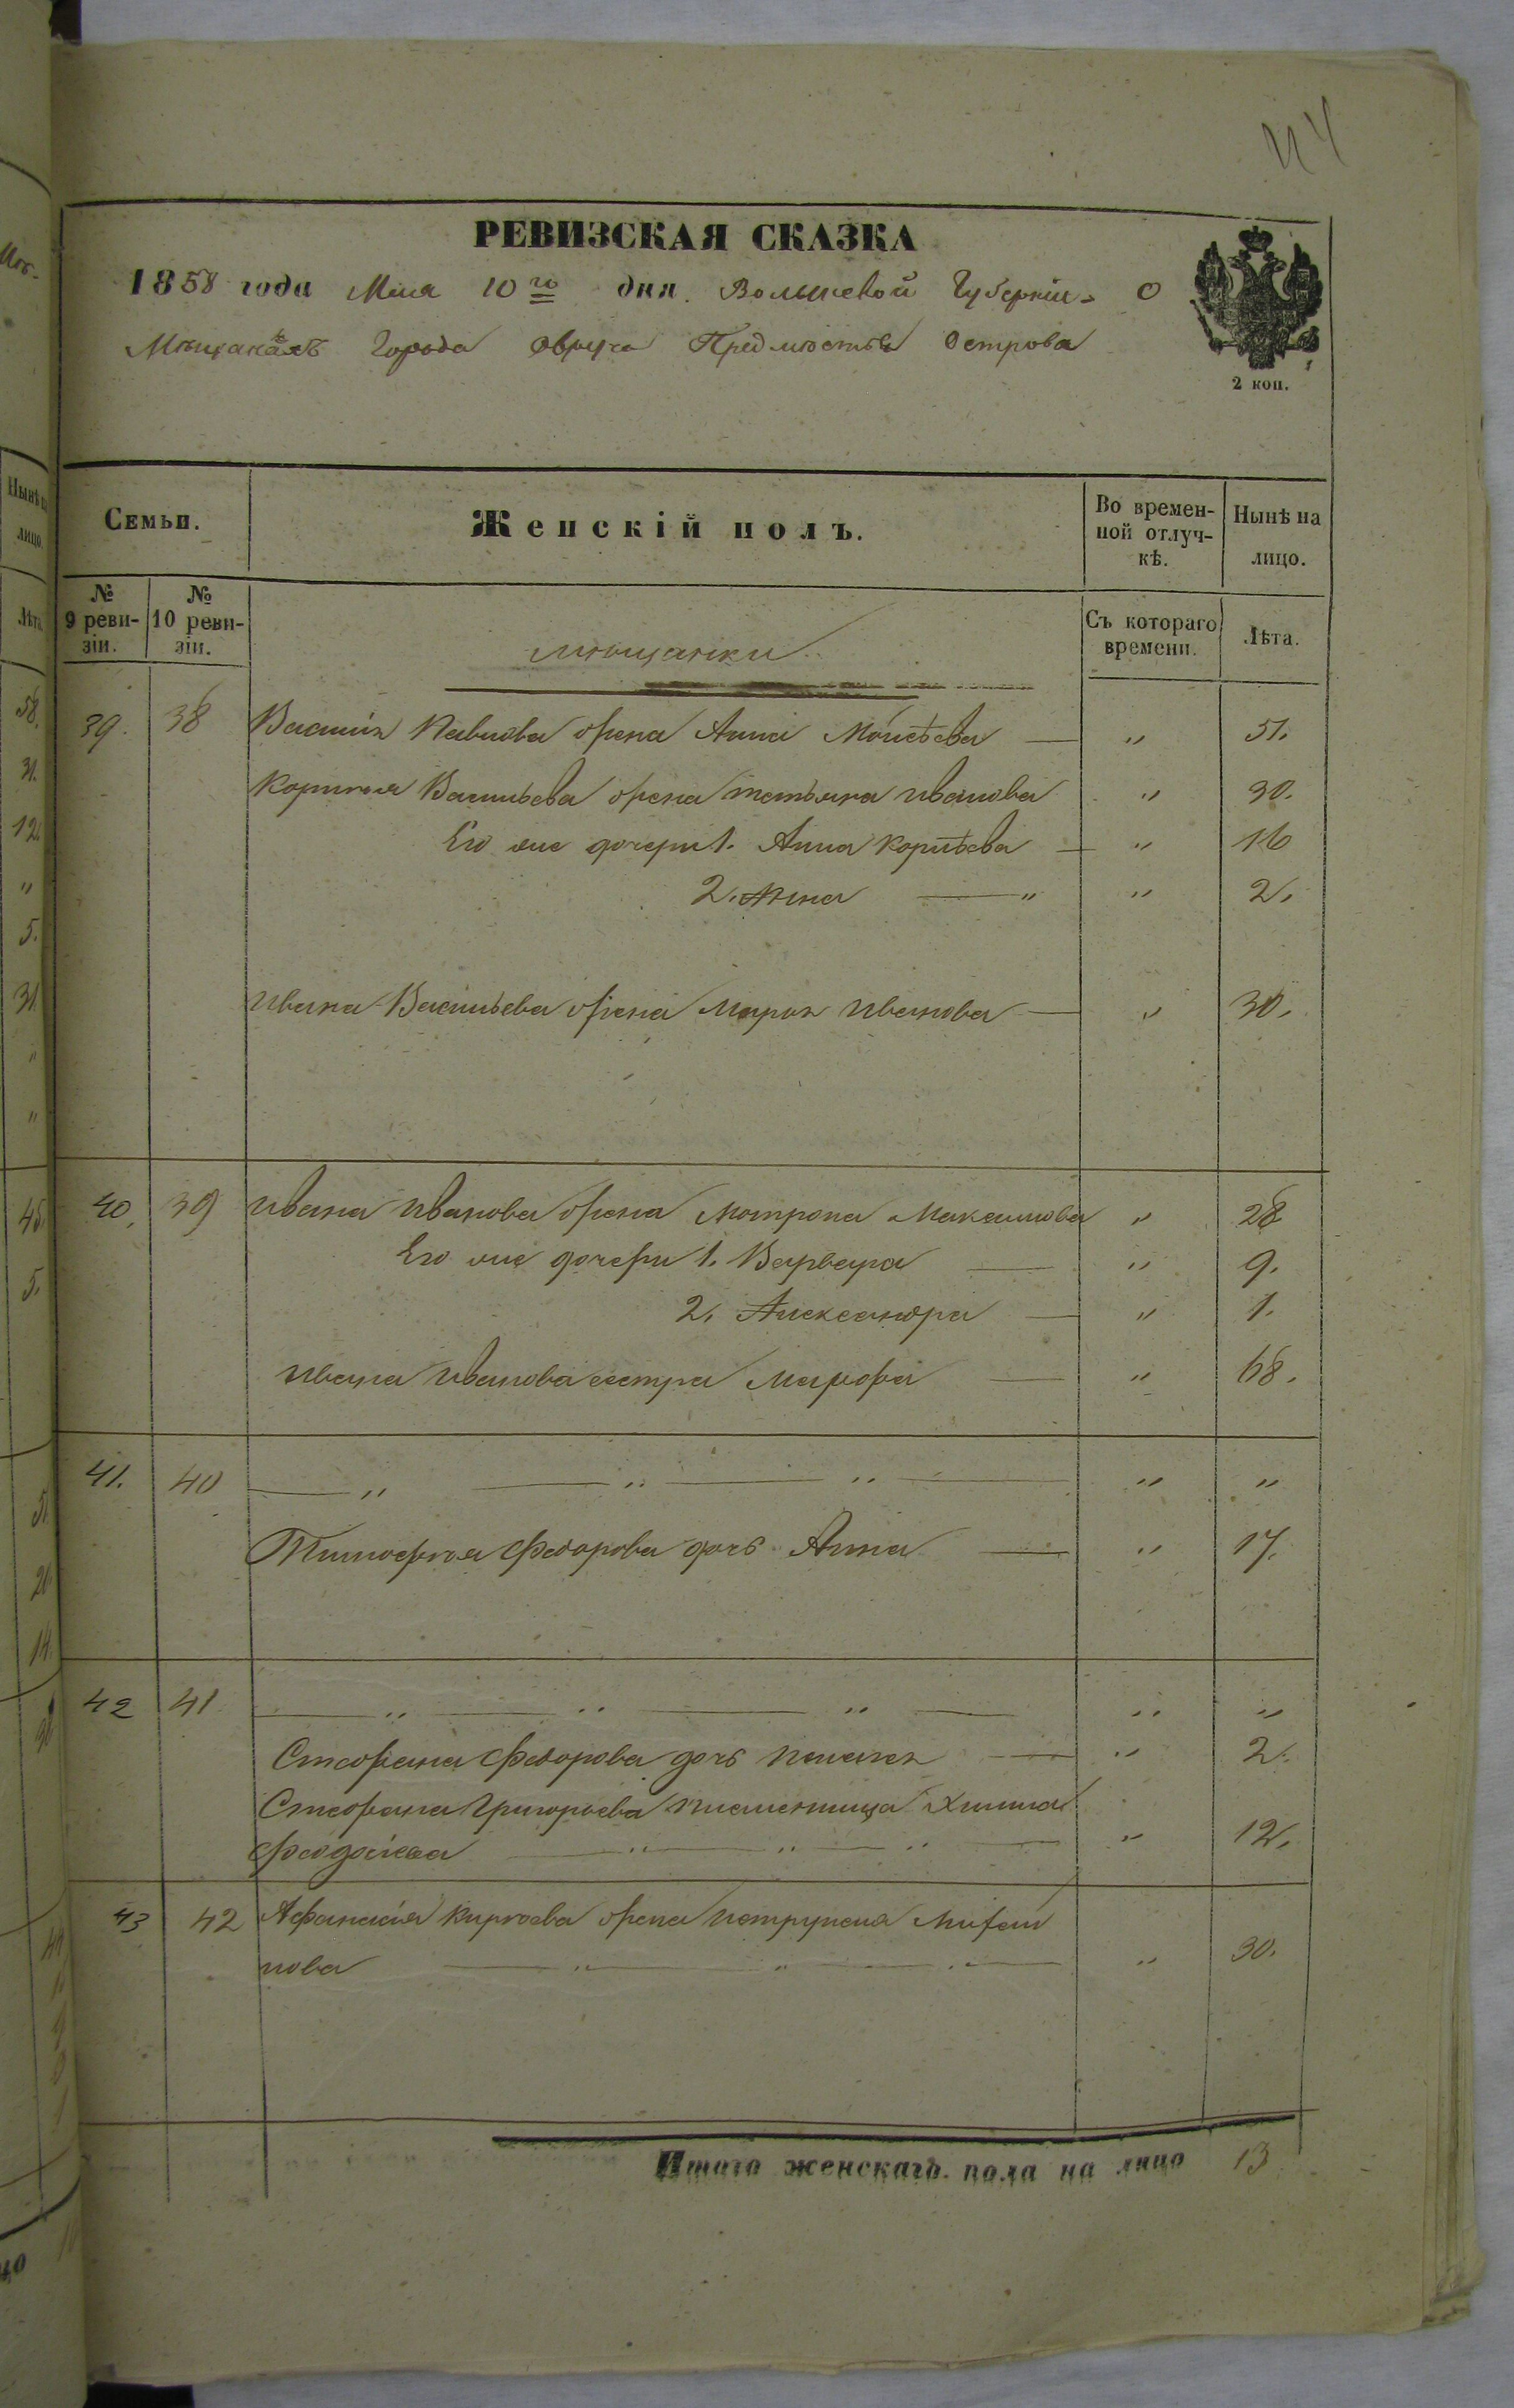 РЕВИЗСКАЯ СКАЗКА
1858 года Мая 10го дня. Волынской Губерніи О
Мѣщанахъ Города Овруча Предмѣстья Острова
2 коп.
Семьи.
Женскій полъ.
Во времен-
ной отлуч-
кѣ.
Нынѣ на
лицо.
№
9 реви-
зіи.
№
10 реви-
зіи.
Съ котораго
времени.
Лѣта.
мѣщанки
39. 38 Василія Павлова жена Анна Моисѣева — " 51.
Корнѣя Васильева жена Татьяна Иванова " 30.
Его же дочери 1. Анна Корнѣева — " 16
2. Анна — " " 2.
Ивана Васильева жена Марья Иванова — " 30.
40. 39 Ивана Иванова жена Мотрона Максимова " 28
Его же дочери 1. Варвара — " 9.
2. Александра — " 1.
Ивана Иванова сестра Марфа — " 68.
41. 40 — " — " — " — " "
Тимофея Федорова дочь Анна — " 17.
42 41 — " — " — " — " "
Стефана Федорова дочь Пелагея — " 2.
Стефана Григорьева племенница Химка
— " — " — " — " 12.
43 42 Афанасія жена
нова — " — " — " — " 30.
Итого женскаго пола на лицо 13